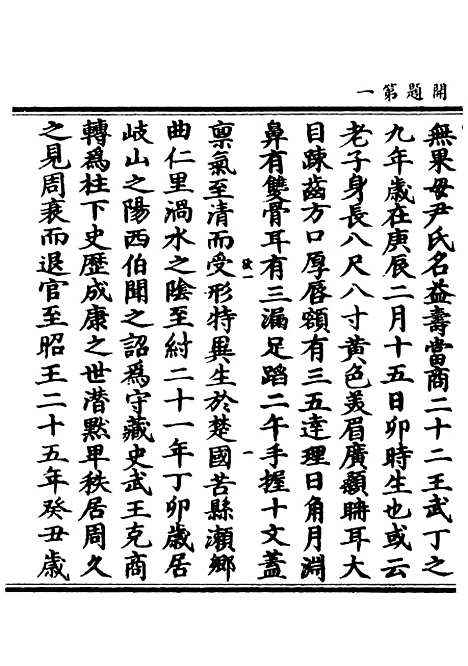 開題第一
無果母尹氏名益壽當商二十二王武丁之
九年歲在庚辰二月十五日卯時生也或云
老子身長八尺八寸黃色美眉廣顙聃耳大
目踈齒方口厚唇額有三五達理日角月淵
鼻有雙骨耳有三漏足蹈二午手握十文蓋
稟氣至清而受形特異生於楚國苦縣瀬鄉
曲仁里渦水之陰至紂二十一年丁卯歲居
岐山之陽西伯聞之詔爲守藏史武王克商
轉爲柱下史歷成康之世潜黙卑秩居周久
之見周衰而退官至昭王二十五年癸丑歲